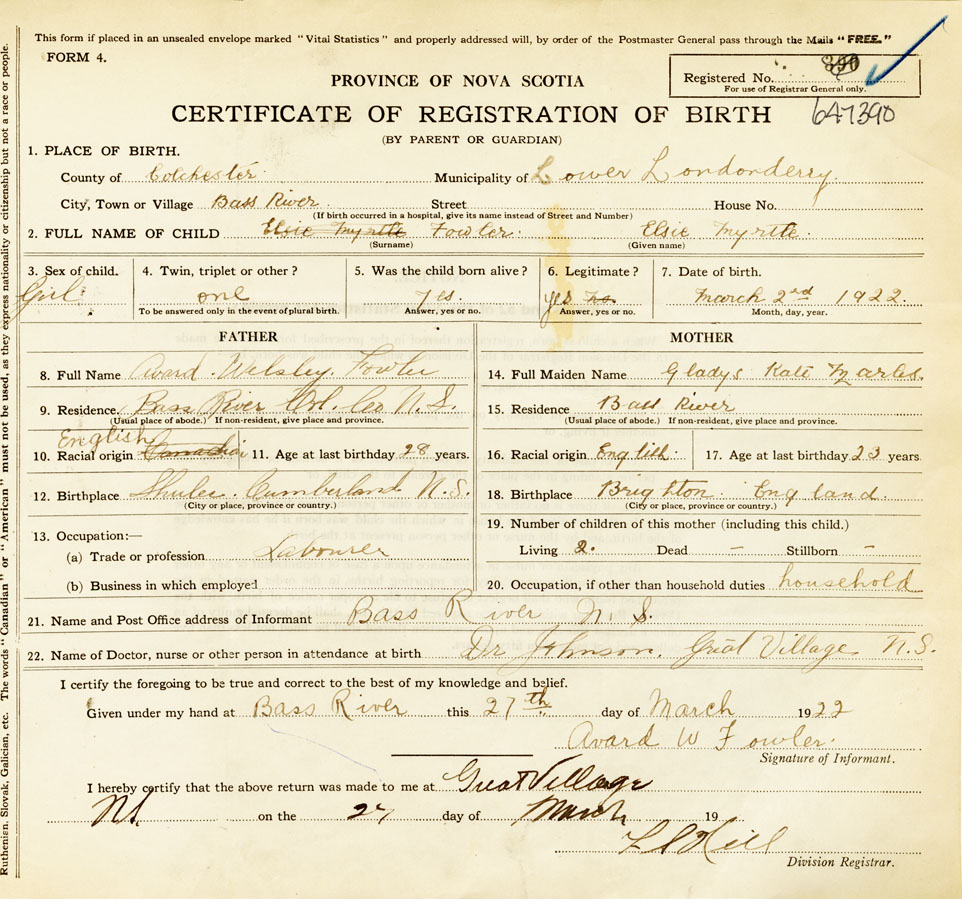 This form if placed in an unsealed envelope marked "Vital Statistics" and properly addressed will, by order of the Postmaster General pass through the Mails "FREE."
FORM 4.
Registered No.
For use of Registrar General only.
PROVINCE OF NOVA SCOTIA
CERTIFICATE OF REGISTRATION OF BIRTH
647390
(BY PARENT OR GUARDIAN)
1. PLACE OF BIRTH.
County of Colchester Municipality of Lower Londonderry
City, Town or Village Bass River Street House No.
(If birth occurred in a hospital, give its name instead of Street and Number)
2. FULL NAME OF CHILD Elsie Myrtle Fowler. Elsie Myrtle.
(Surname) (Given name)
3. Sex of child. 4. Twin, triplet or other? 5. Was the child born alive? 6. Legitimate? 7. Date of birth.
Girl one yes. yes no March 2nd 1922.
To be answered only in the event of plural birth. Answer, yes or no. Answer, yes or no. Month, day, year.
FATHER MOTHER
8. Full Name Avard Welsley Fowler
9. Residence Bass River Col. Co N.S.
(Usual place of abode.) If non-resident, give place and province.
English
10. Racial origin Canadian 11. Age at last birthday 28 years.
12. Birthplace Shulee. Cumberland N.S.
(City or place, province or country.)
13. Occupation:—
(a) Trade or profession Labourer
(b) Business in which employed
14. Full Maiden Name Gladys Kate
15. Residence Bass River
(Usual place of abode.) If non-resident, give place and province.
16. Racial origin English. 17. Age at last birthday 23 years
18. Birthplace Brighton. England.
(City or place, province or country.)
19. Number of children of this mother (including this child.)
Living 2. Dead — Stillborn —
20. Occupation, if other than household duties household
21. Name and Post Office address of Informant Bass River N. S.
22. Name of Doctor, nurse or other person in attendance at birth Dr Johnson. Great Village N.S.
I certify the foregoing to be true and correct to the best of my knowledge and belief.
Given under my hand at Bass River this 27th day of March 1922
Avard W Fowler.
Signature of Informant.
I hereby certify that the above return was made to me at Great Village
NS. on the 27 day of March 19
Hill
Division Registrar.
Ruthenien, Slovak, Galician, etc. The words "Canadian" or "American" must not be used, as they express nationality or citizenship but not a race or people.